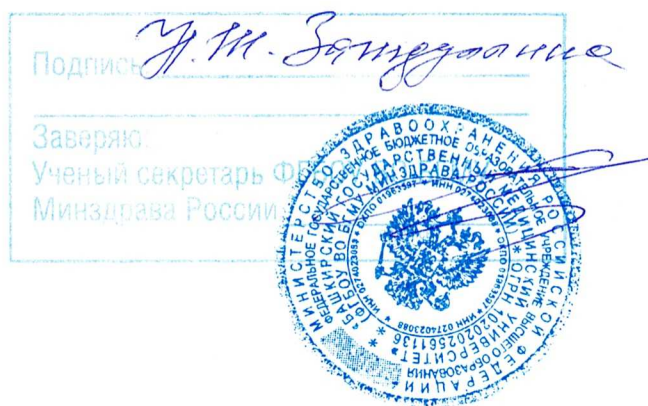 Подпись
Заверяю:
Ученый секретарь
Минздрава России
МИНИСТЕРСТВО ЗДРАВООХРАНЕНИЯ РОССИЙСКОЙ ФЕДЕРАЦИИ
ФЕДЕРАЛЬНОЕ ГОСУДАРСТВЕННОЕ БЮДЖЕТНОЕ ОБРАЗОВАТЕЛЬНОЕ УЧРЕЖДЕНИЕ ВЫСШЕГО ОБРАЗОВАНИЯ
«БАШКИРСКИЙ ГОСУДАРСТВЕННЫЙ МЕДИЦИНСКИЙ УНИВЕРСИТЕТ»
(ФГБОУ ВО БГМУ МИНЗДРАВА РОССИИ) * ОГРН 1020202561136 *
* ИНН 0274023088 * ОКПО 01963597 * ИНН 0274023088 * ОКПО 01963597